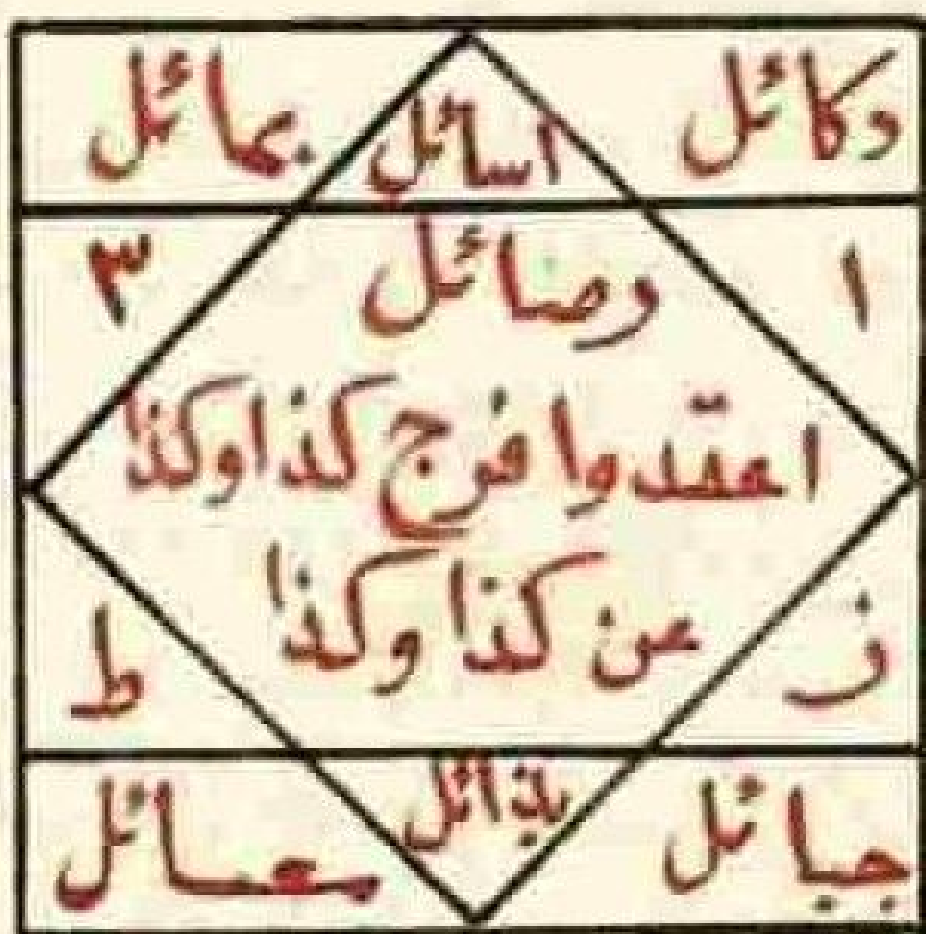 وكائل اسائل بمائل
١ وصائل ٣
اعقدوا فرج كذا وكذا
عن كذا وكذا
ف ط
جبائل بذائل معائل